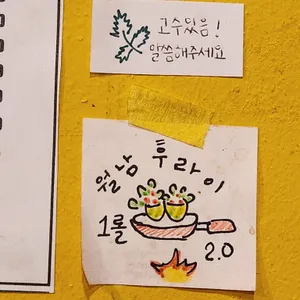 고수있음!
말씀해주세요
월남 튀라이
1롤
2.0